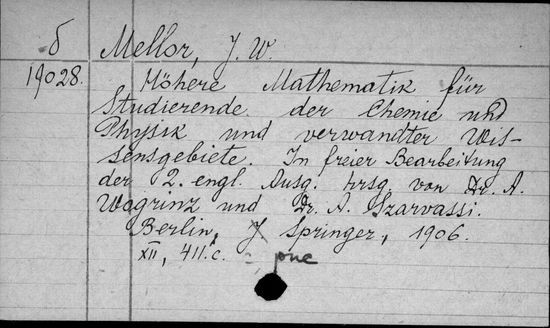 δ Mellor, J. W.
19028. Höhere Mathematik für
Studierende der Chemie und
Physik und verwandter Wis-
sensgebiete. In freier Bearbeitung
der 2. engl. Ausg. hrsg. von Dr. A.
Wogrinz und Dr. A. Szarvassi.
Berlin, J. Springer, 1906.
XII, 411 c. рис